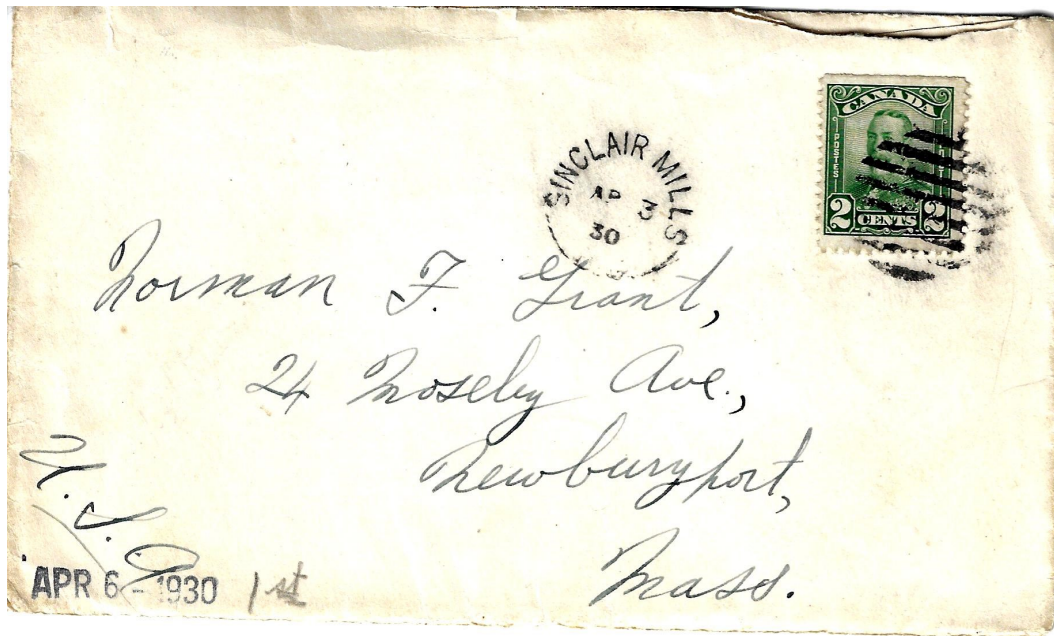 CANADA
POSTES
2 CENTS 2
SINCLAIR MILLS
AP 3
30
Norman F. Grant,
24 Moseley Ave.,
Newburyport,
Mass.
U.S.A
APR 6 - 1930 1st